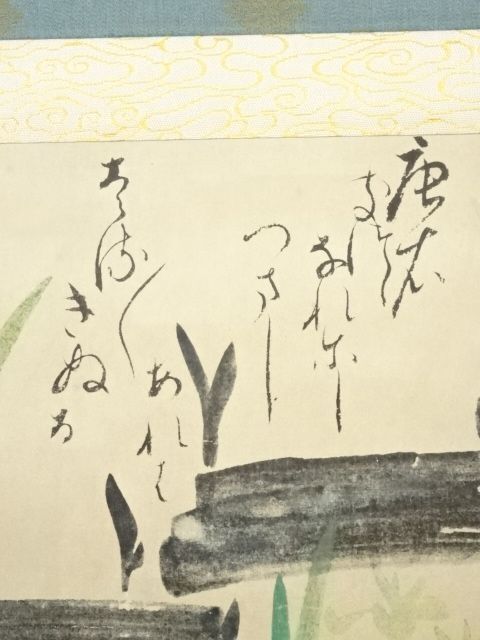 唐衣
きつゝ
なれにし
つまし
あれは
はる〱
きぬる